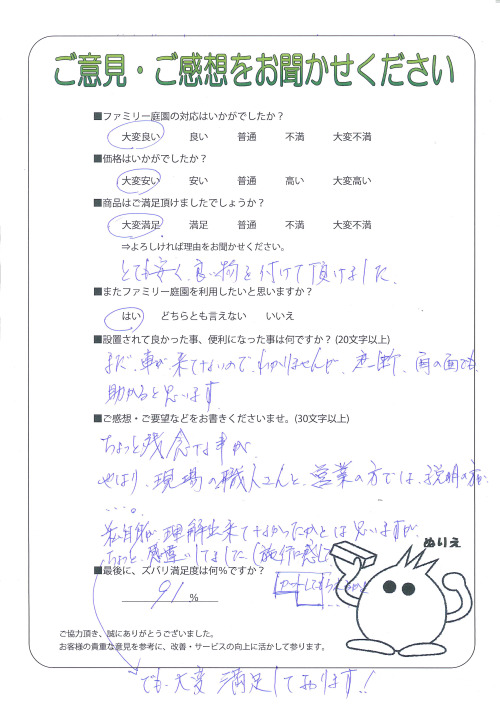 ご意見・ご感想をお聞かせください
■ファミリー庭園の対応はいかがでしたか？
大変良い 良い 普通 不満 大変不満
■価格はいかがでしたか？
大変安い 安い 普通 高い 大変高い
■商品はご満足頂けましたでしょうか？
大変満足 満足 普通 不満 大変不満
⇒よろしければ理由をお聞かせください。
とても安く、良い物を付けて頂けました、
■またファミリー庭園を利用したいと思いますか？
はい どちらとも言えない いいえ
■設置されて良かった事、便利になった事は何ですか？(20文字以上)
まだ、車が来てないので、わかりませんが、 雨の面でも
助かると思います
■ご感想・ご要望などをお書きくださいませ。(30文字以上)
ちょっと残念な事が
やはり、現場の職人さんと、営業の方では、説明の方が
…。
私自身が理解出来てなかったかとは思いますが、
ちょっと、感違いしてました（施行に感して
カットしてもらえるかと
…
■最後に、ズバリ満足度は何%ですか？
91 %
ぬりえ
ご協力頂き、誠にありがとうございました。
お客様の貴重な意見を参考に、改善・サービスの向上に活かして参ります。
でも、大変 満足しております!!